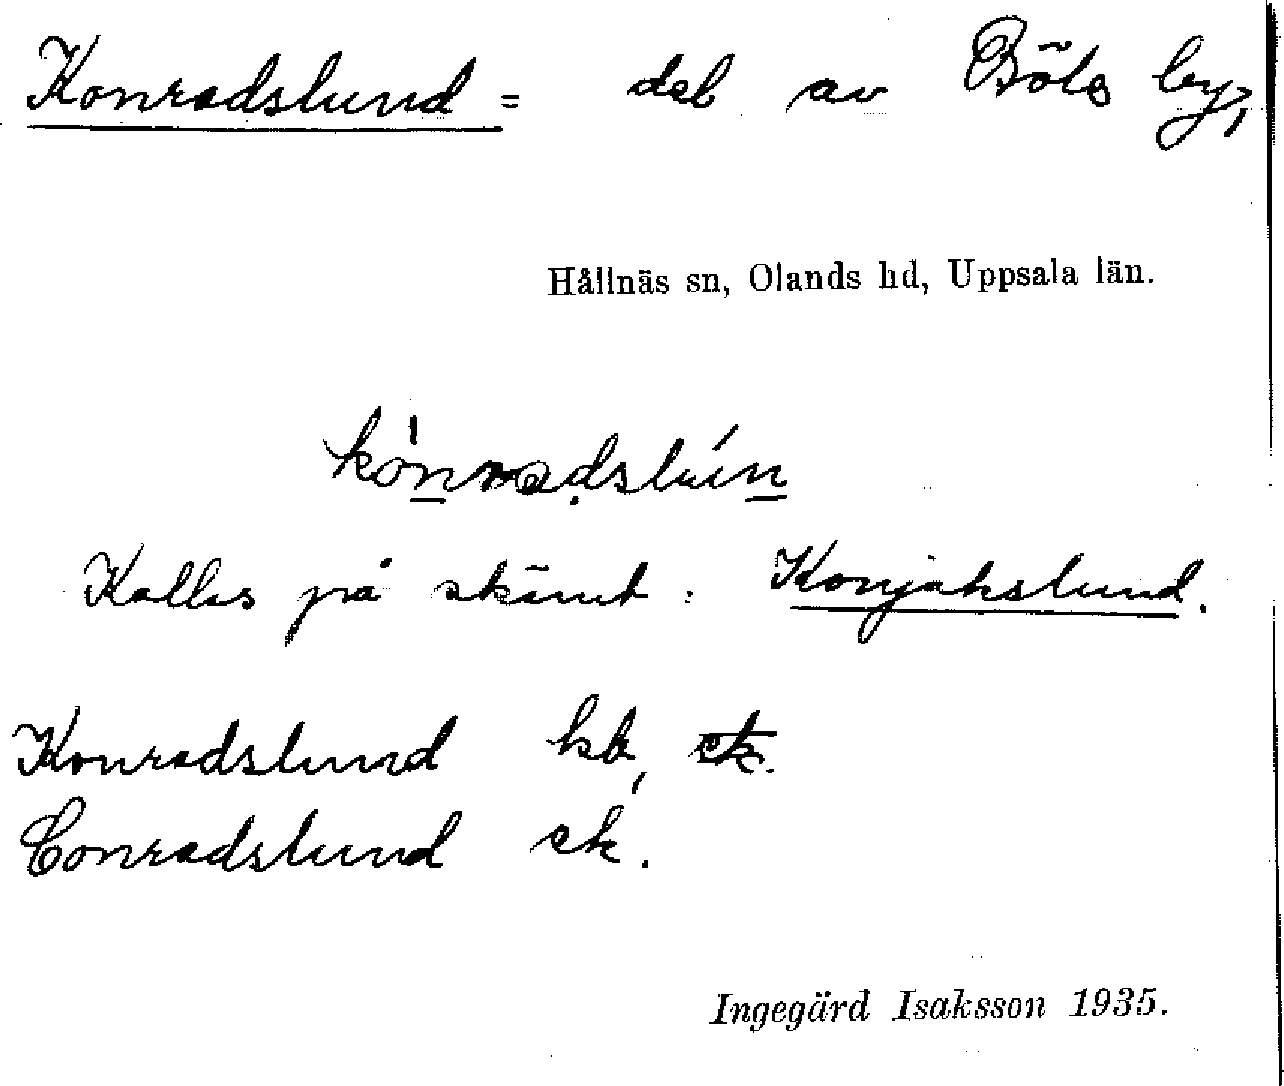 Konradslund = del av Böle by,
Hållnäs sn, Olands hd, Uppsala län.
kónradslún
Kallas på skämt: Konjakslund.
Konradslund hb, ek.
Conradslund ek.
Ingegärd Isaksson 1935.